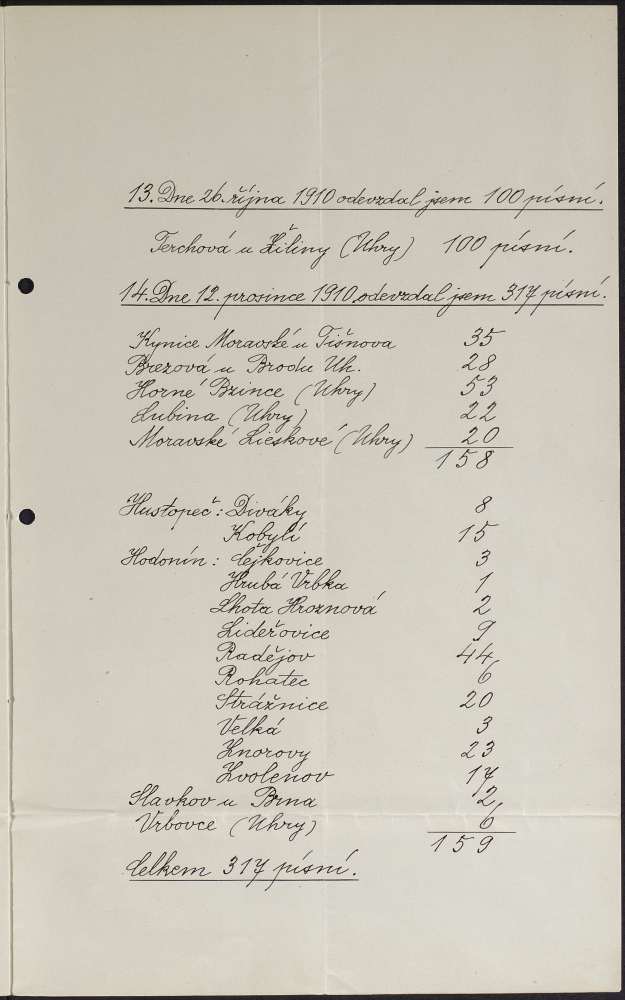 13. Dne 26. října 1910 odevzdal jsem 100 písní.
Terchová u Žiliny (Uhry) 100 písní.
14. Dne 12. prosince 1910 odevzdal jsem 317 písní.
Kynice Moravské u Tišnova 35
Březová u Brodu Uh. 28
Horné Bzince (Uhry) 53
Lubina (Uhry) 22
Moravské Lieskové (Uhry) 20
158
Hustopeč: Diváky 8
Kobylí 15
Hodonín: Čejkovice 3
Hrubá Vrbka 1
Lhota Hroznová 2
Lideřovice 9
Radějov 44
Rohatec 6
Strážnice 20
Velká 3
Znorovy 23
Zvolenov 17
Slavkov u Brna 2
Vrbovce (Uhry) 6
159
Celkem 317 písní.